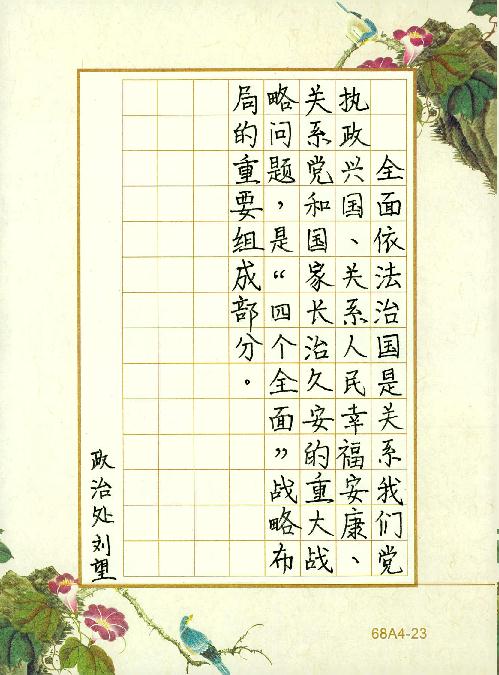 全面依法治国是关系我们党
执政兴国、关系人民幸福安康、
关系党和国家长治久安的重大战
略问题，是“四个全面”战略布
局的重要组成部分。
政治处刘望
68A4-23